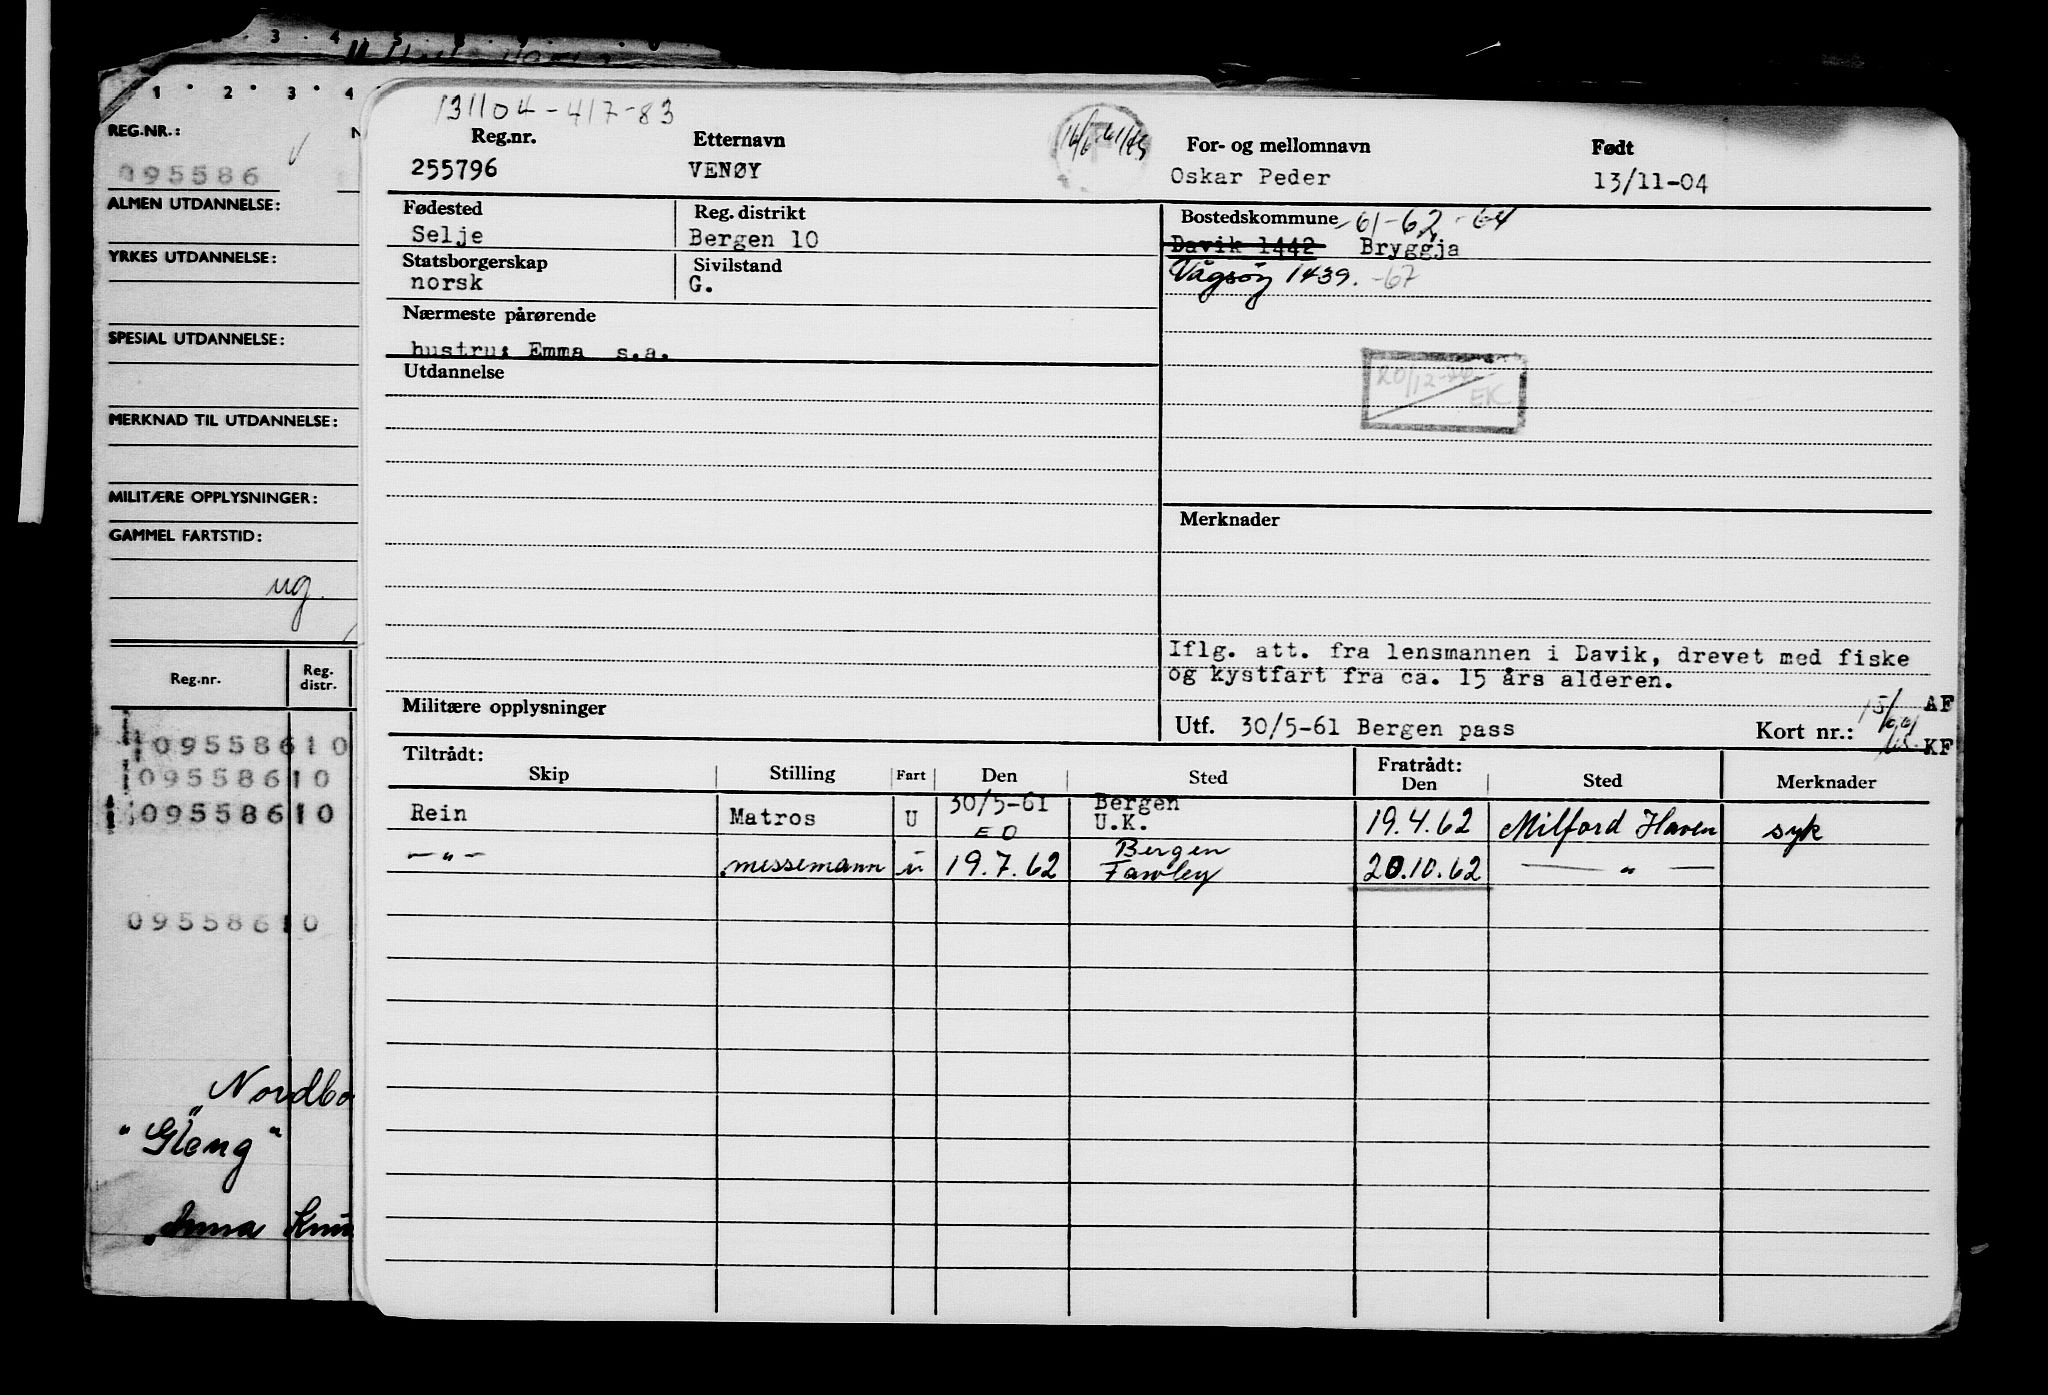 3 4
1 2 3 4
REG.NR.:
095586
ALMEN UTDANNELSE:
YRKES UTDANNELSE:
SPESIAL UTDANNELSE:
MERKNAD TIL UTDANNELSE:
MILITÆRE OPPLYSNINGER:
GAMMEL FARTSTID:
ug.
Reg.nr. Reg. distr.
09558610
09558610
09558610
09558610
"Nordbo
"Gleng"
Knu
131104-417-83
Reg.nr. Etternavn For- og mellomnavn Født
255796 VENØY Oskar Peder 13/11-04
Fødested Reg. distrikt Bostedskommune -61-62-64
Selje Bergen 10 Davik 1442 Bryggja
Statsborgerskap Sivilstand Vågsøy 1439. -67
norsk G.
Nærmeste pårørende
hustru: Emma s.a.
Utdannelse
20/12- EK
Merknader
Iflg. att. fra lensmannen i Davik, drevet med fiske
og kystfart fra ca. 15 års alderen.
Militære opplysninger
Utf. 30/5-61 Bergen pass Kort nr.: AF
KF
Tiltrådt: Fratrådt:
Skip Stilling Fart Den Sted Den Sted Merknader
Rein Matros U 30/5-61 Bergen 19.4.62 Milford Haven syk
EO U.K.
—"— messemann u 19.7.62 Bergen 20.10.62 —"—
Fawley